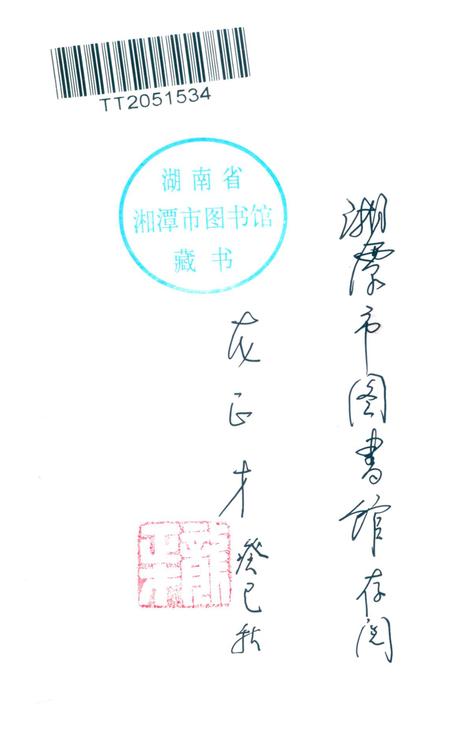 TT2051534
湖南省
湘潭市图书馆
藏书
湘潭市图書馆存阅
正才
癸巳秋